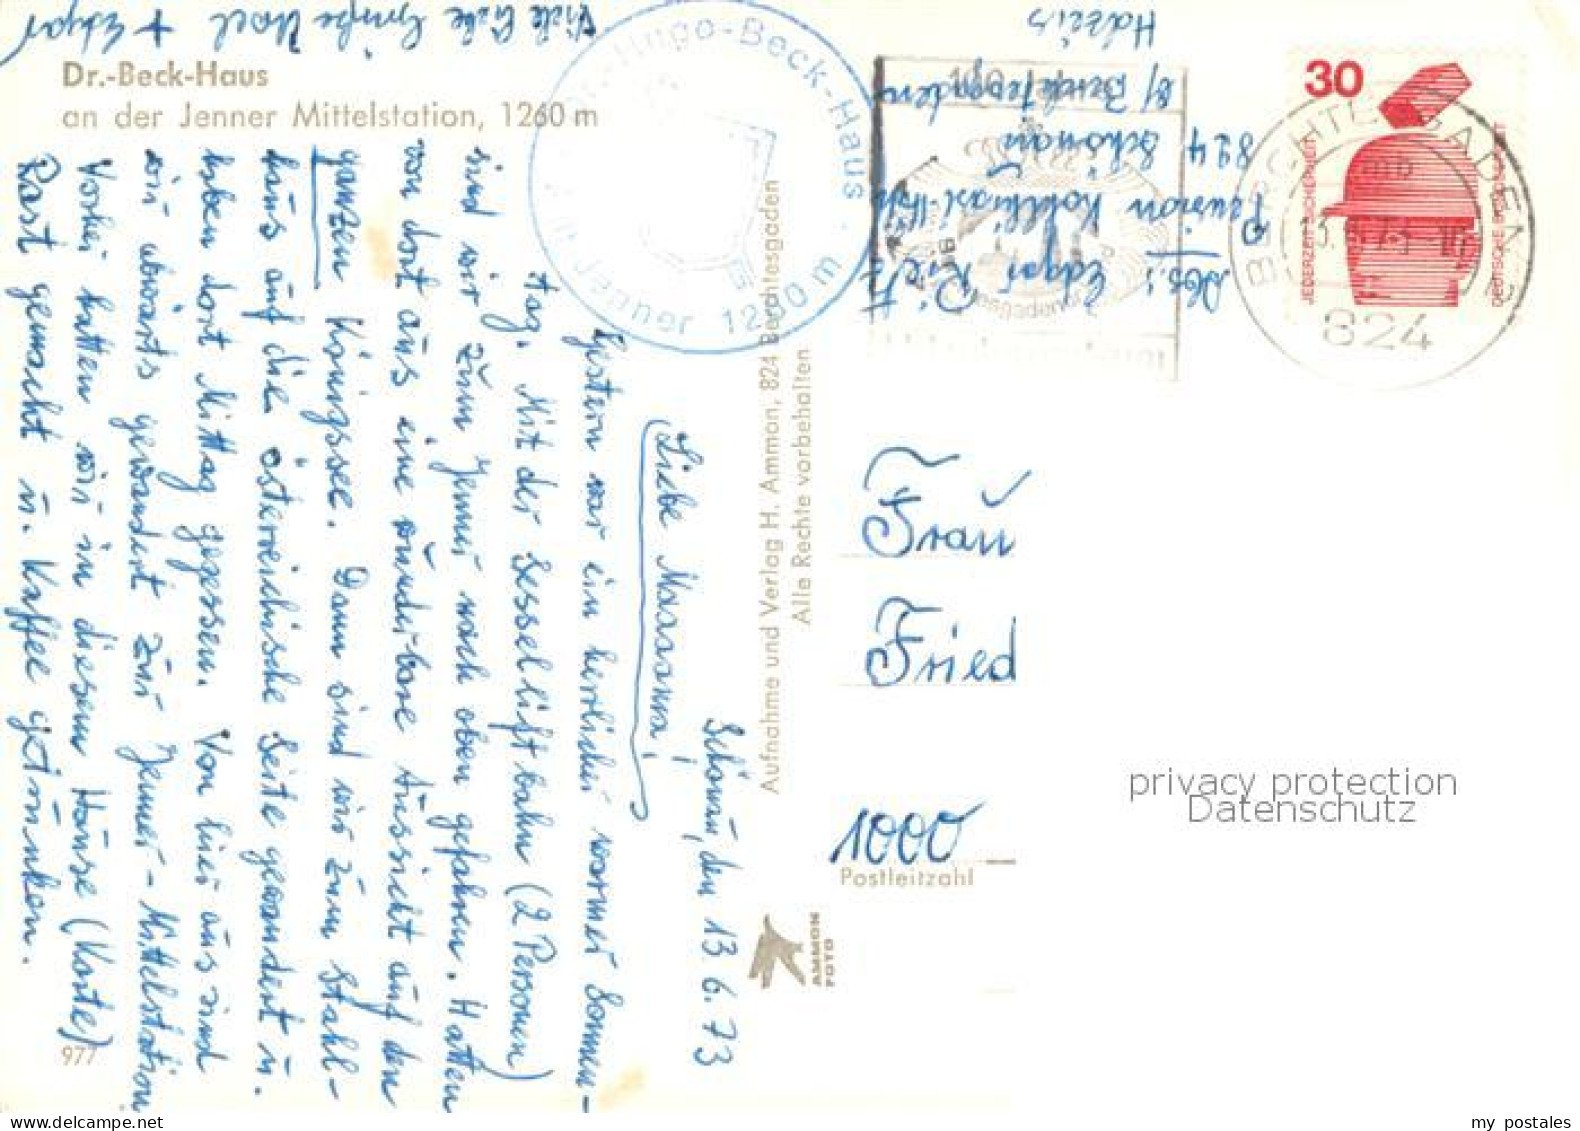 Dr.-Beck-Haus
an der Jenner Mittelstation, 1260 m
Schönau, den 13.6.73
Liebe
Gestern war ein herrlicher warmer Sonnen-
tag. Mit der Sesselliftbahn (2 Personen)
sind wir zum Jenner nach oben gefahren. Hatten
von dort aus eine wunderbare Aussicht auf den
ganzen Königssee. Dann sind wir zum Stahl-
haus auf die österreichische Seite gewandert u.
haben dort Mittag gegessen. Von hier aus sind
wir abwärts gewandert zur Jenner-Mittelstation
Vorher hatten wir in diesem Hause (Karte)
Rast gemacht u. Kaffee getrunken.
Viele liebe Grüße Ursel + Edgar
Hugo-Beck-Haus
Jenner 1260 m
Aufnahme und Verlag H. Ammon, 824 Berchtesgaden
Alle Rechte vorbehalten
AMMON
FOTO
977
Abs.: Edgar
Pension
824 Schönau
b/ Berchtesgaden
30
JEDERZEIT SICHERHEIT
DEUTSCHE BUNDESPOST
BERCHTESGADEN
mb
824
Frau
Fried
1000
Postleitzahl
privacy protection
Datenschutz
my postales